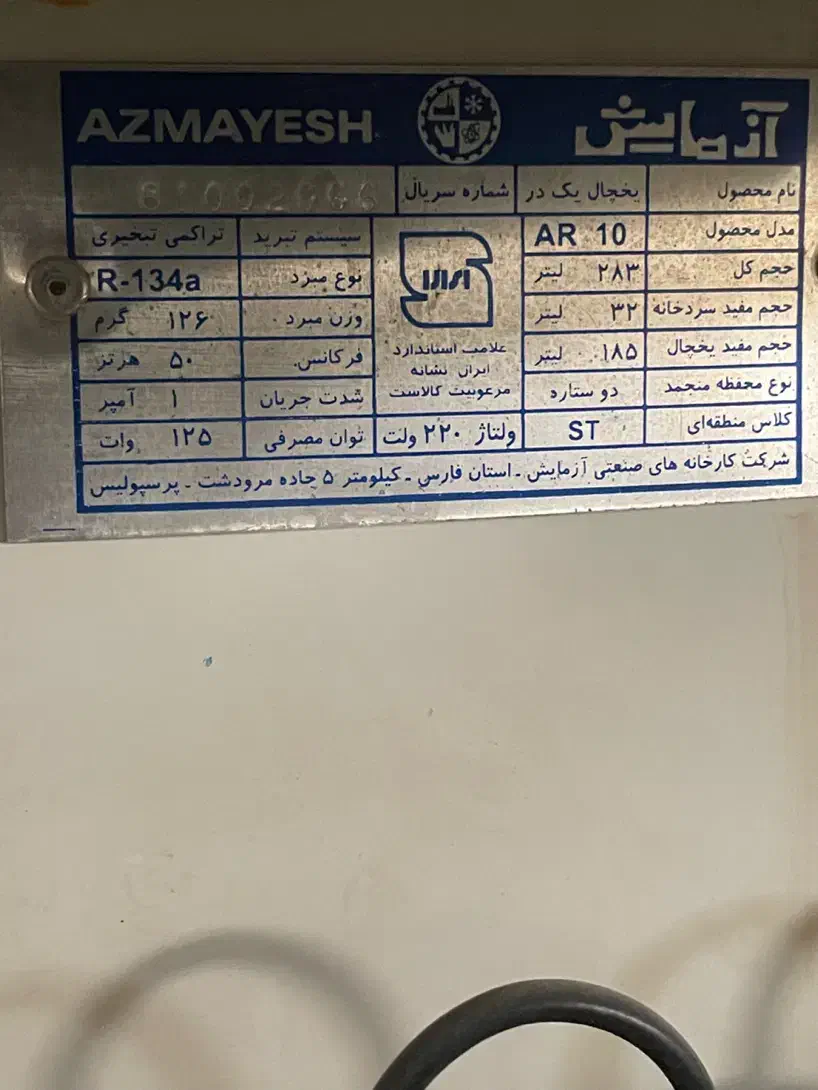 AZMAYESH آزمایش
نام محصول یخچال یک در شماره سریال
مدل محصول AR 10 سیستم تبرید تراکمی تبخیری
حجم کل ۲۸۳ لیتر نوع مبرد R-134a
حجم مفید سردخانه ۳۲ لیتر وزن مبرد ۱۲۶ گرم
حجم مفید یخچال ۱۸۵ لیتر فرکانس ۵۰ هرتز
نوع محفظه منجمد دو ستاره شدت جریان ۱ آمپر
کلاس منطقه‌ای ST ولتاژ ۲۲۰ ولت توان مصرفی ۱۲۵ وات
علامت استاندارد
ایران نشانه
مرغوبیت کالاست
شرکت کارخانه های صنعتی آزمایش ـ استان فارس ـ کیلومتر ۵ جاده مرودشت ـ پرسپولیس